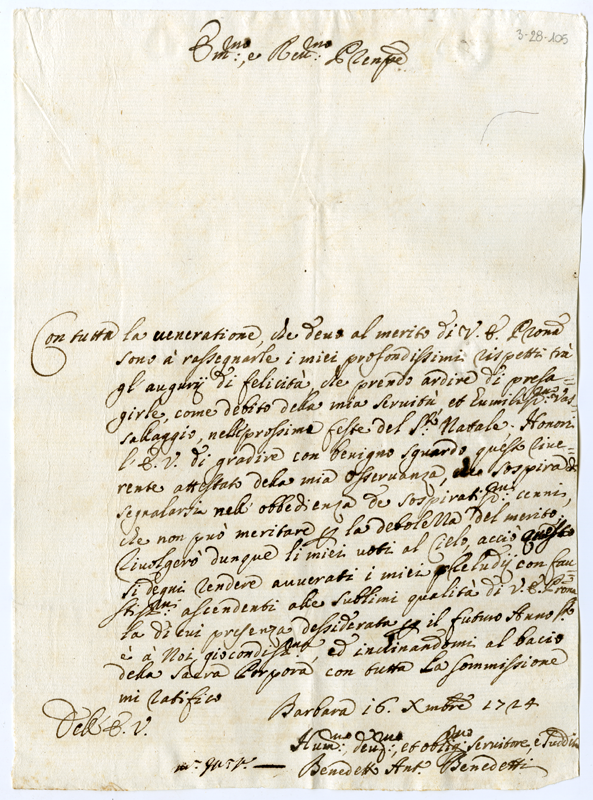 3-28-105
Em:mo, e Reu:mo Prenpe
Con tutta la ueneratione, che deuo al merito di V. E. Prona
sono à rassegnarle i miei profondissimi rispetti trà
gl' augurij di felicità, che prendo ardire di presa=
girle, come debito della mia seruitù et humiliss:mo Vas=
sallaggio, nelle prossime feste del S:to Natale. Honori
l'E. V. di gradire con benigno sguardo questo riue=
rente attestato della mia osseruanza, che sospira di
segnalarsi nell' obbedienza de sospiratiss:mi cenni,
che non può meritare p la debolezza del merito;
Riuolgerò dunque li miei uoti al Cielo, acciò questo
si degni rendere auuerati i miei preludij con fau
stiss:mi ascendenti alle sublimi qualità di V. E. Prona
la di cui presenza dessiderata p il futuro Anno
è a Noi giocondiss:ma ed inclinandomi al bacio
della Sacra Porpora, con tutta la sommissione
mi ratifico
Barbara 16. Xmbre 1724
Dell' E. V.
Hum:mo, deu:mo, et oblig:mo Seruitore, e Suddito
Benedett. Ant. Benedetti